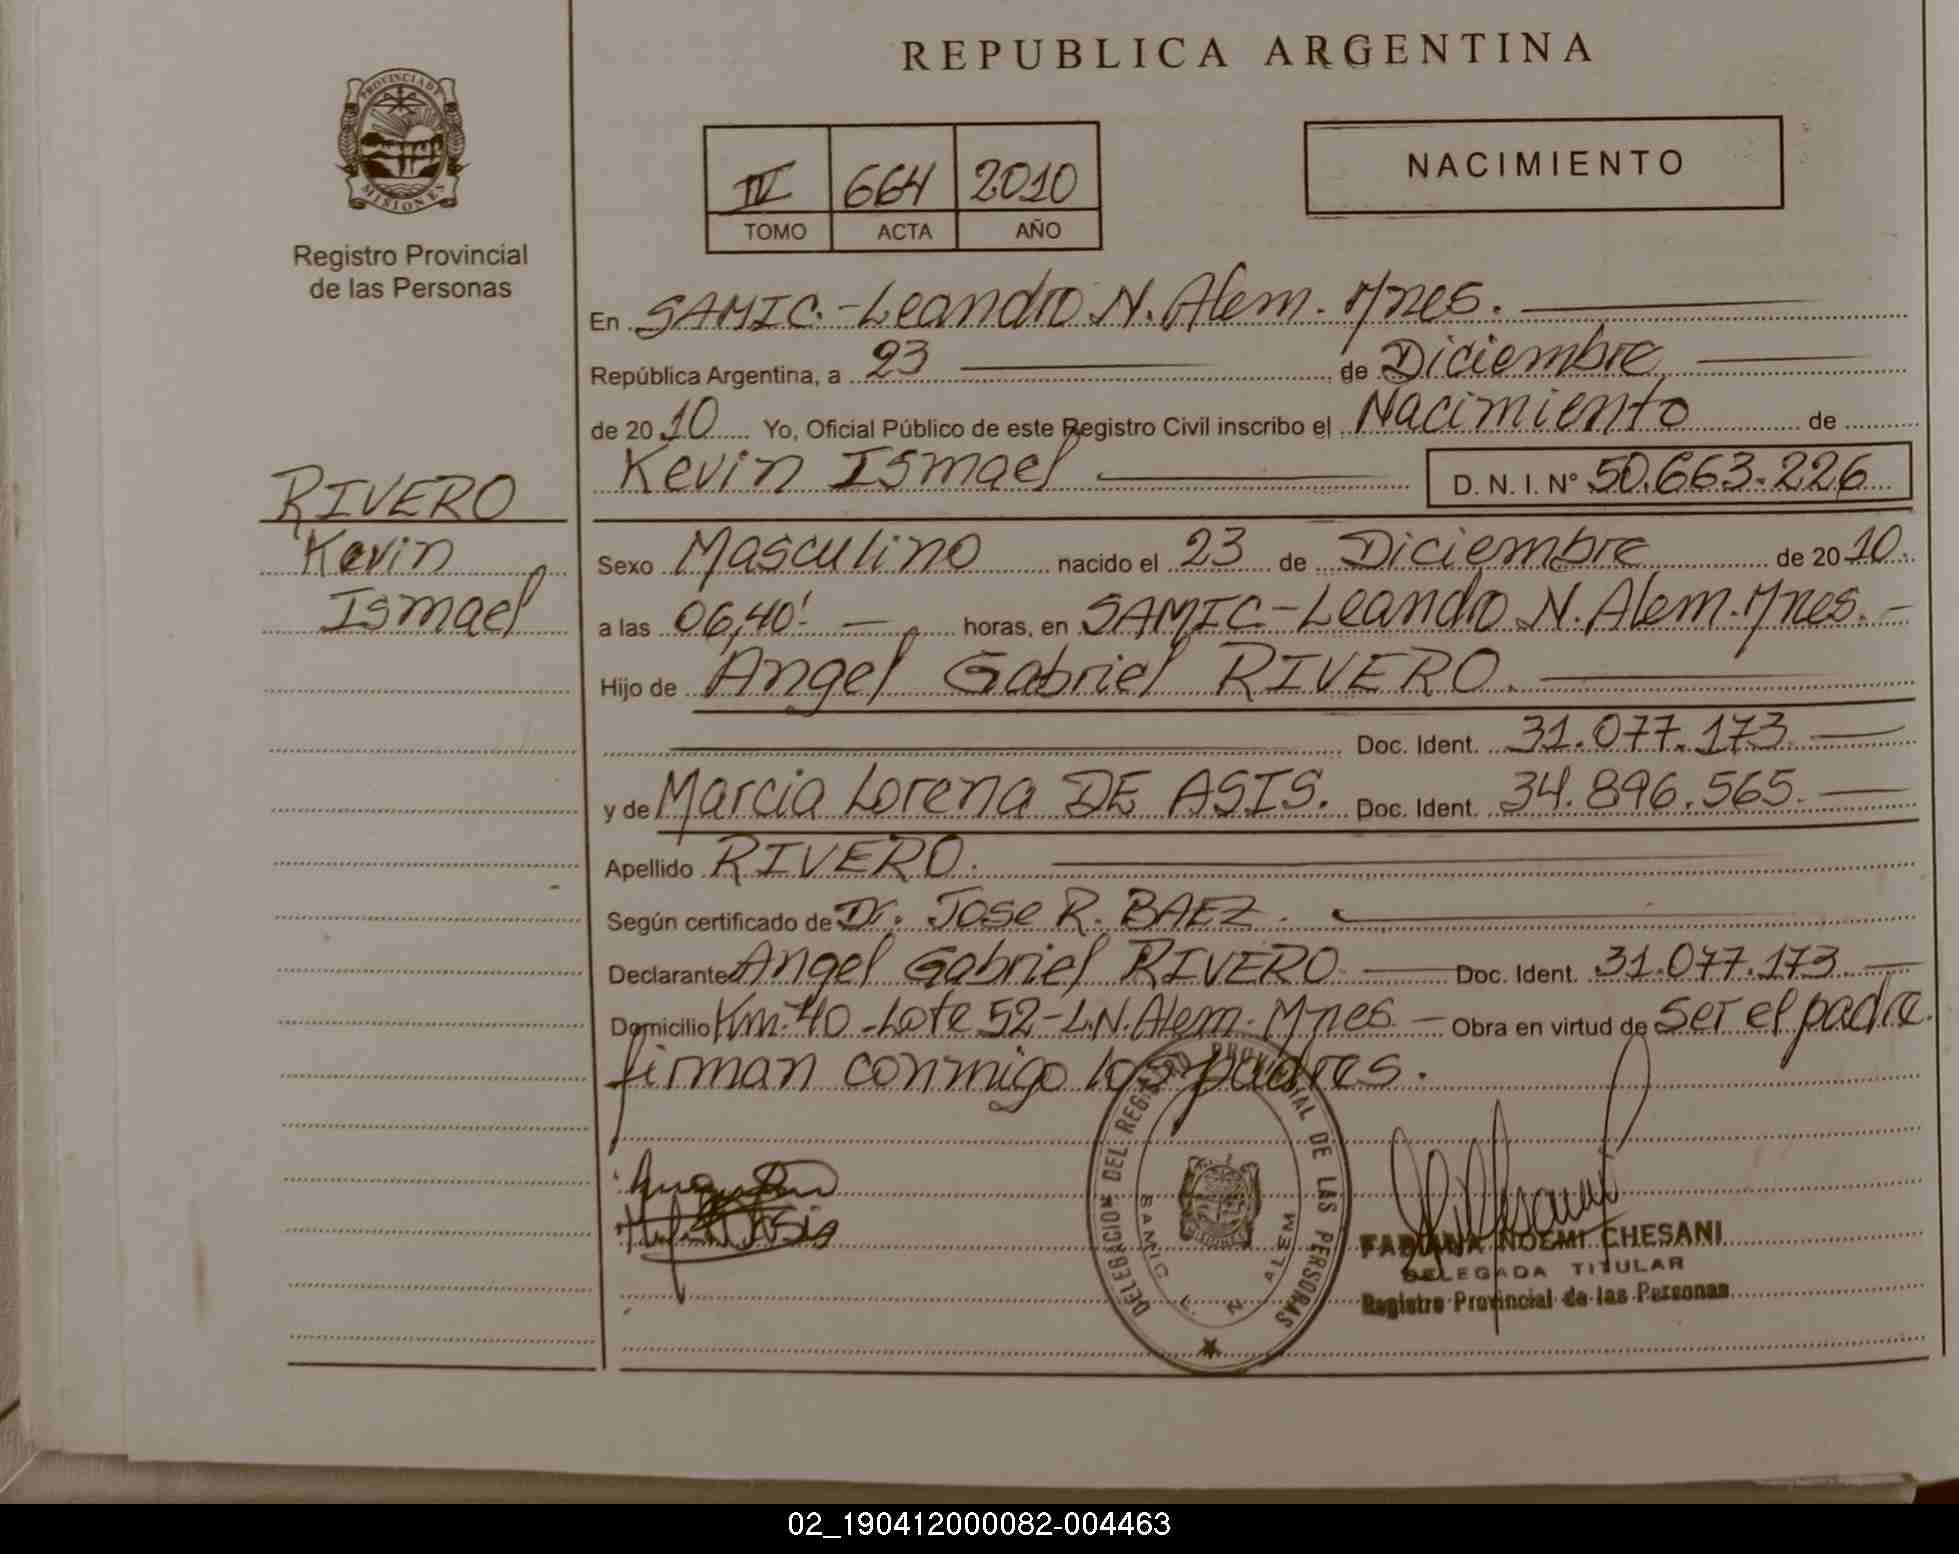 REPUBLICA ARGENTINA
PROVINCIA DE MISIONES
Registro Provincial
de las Personas
IV 664 2010
TOMO ACTA AÑO
NACIMIENTO
En SAMIC.-Leandro N. Alem. Mnes.
República Argentina, a 23 de Diciembre
de 2010 Yo, Oficial Público de este Registro Civil inscribo el Nacimiento de
Kevin Ismael D. N. I. N° 50.663.226
RIVERO
Kevin
Ismael
Sexo Masculino nacido el 23 de Diciembre de 2010.
a las 06,40' horas, en SAMIC-Leandro N. Alem. Mnes.-
Hijo de Angel Gabriel RIVERO.
Doc. Ident. 31.077.173
y de Marcia Lorena DE ASIS. Doc. Ident. 34.896.565.
Apellido RIVERO.
Según certificado de Dr. Jose R. BAEZ.
Declarante Angel Gabriel RIVERO Doc. Ident. 31.077.173
Domicilio Km. 40 -Lote 52-L.N. Alem. Mnes - Obra en virtud de ser el padre.
firman conmigo los padres.
DELEGACION DEL REGISTRO PROVINCIAL DE LAS PERSONAS
SAMIC L. N. ALEM
FABIANA NOEMI CHESANI
DELEGADA TITULAR
Registro Provincial de las Personas
02_190412000082-004463